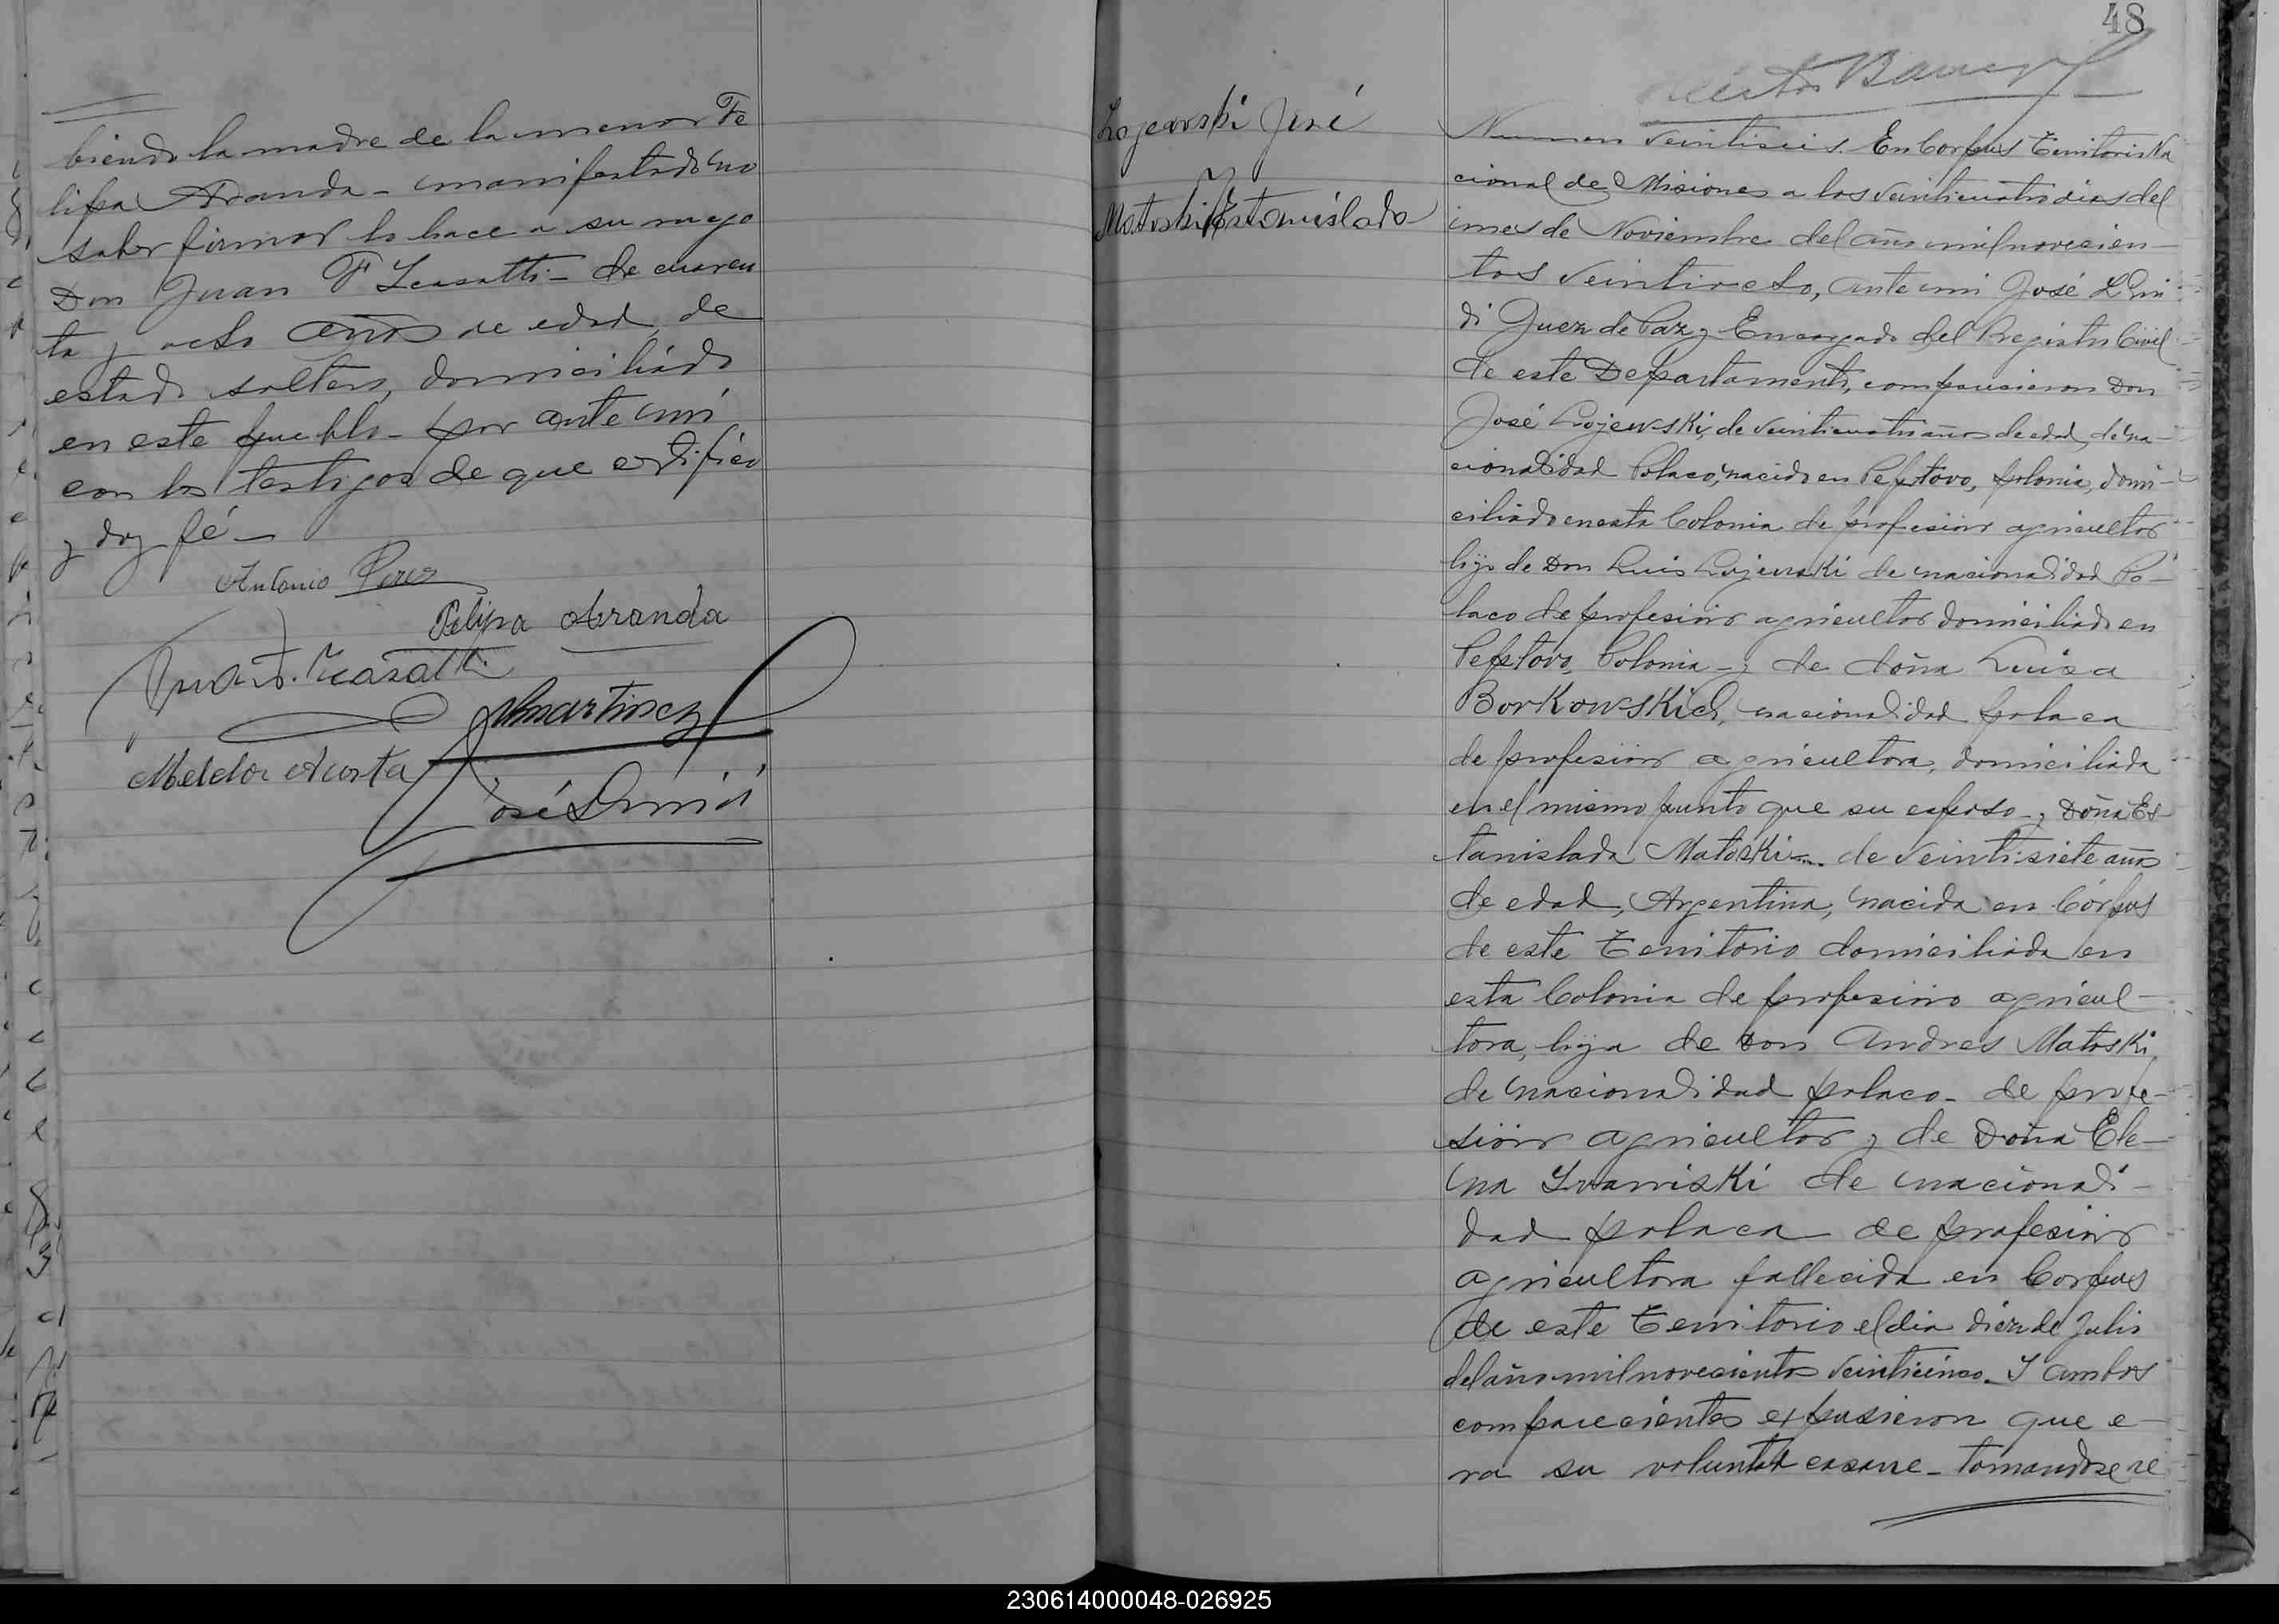 biendo la madre de la menor Fe
lipa Aranda - manifestado no
saber firmar lo hace a su ruego
Don Juan F - de cuaren
ta y ocho años de edad, de
estado soltero, domiciliado
en este pueblo - por ante mi
con los testigos de que certifico
y doy fé -
Antonio Perez
Felipa Aranda
Juan F.
Martinez
Melchor Acosta
José
48
Lojewski José
y
Matoski Estanislada
Numero veintiseis. En Corpus Territorio Na
cional de Misiones a los veinticuatro dias del
mes de Noviembre del año mil novecien-
tos veintiocho, ante mi José
Juez de Paz y Encargado del Registro Civil
de este Departamento, comparecieron Don
José Lojewski, de veinticuatro años de edad, de na-
cionalidad Polaco, nacido en Polonia, domi-
ciliado en esta Colonia de profesión agricultor
hijo de Don Luis Lojewski de nacionalidad Po-
laco de profesión agricultor domiciliado en
Polonia - y de doña Luisa
Borkowskich, nacionalidad polaca
de profesión agricultora, domiciliada
en el mismo punto que su esposo - y Doña Es-
tanislada Matoski - de veintisiete años
de edad, Argentina, nacida en Córpus
de este Territorio domiciliada en
esta Colonia de profesión agricul-
tora, hija de Don Andres Matoski
de nacionalidad polaco - de profe-
sión agricultor y de Doña Ele-
na de nacionali-
dad polaca de profesión
agricultora fallecida en Corpus
de este Territorio el dia diez de Julio
del año mil novecientos veinticinco. Y ambos
comparecientes expusieron que e-
ra su voluntad casarse - tomandose re
230614000048-026925